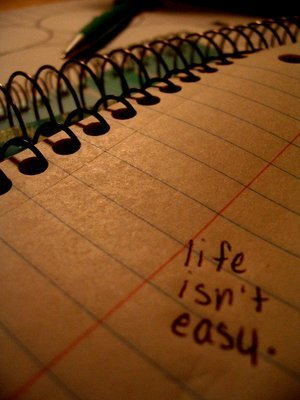 life
isn't
easy.